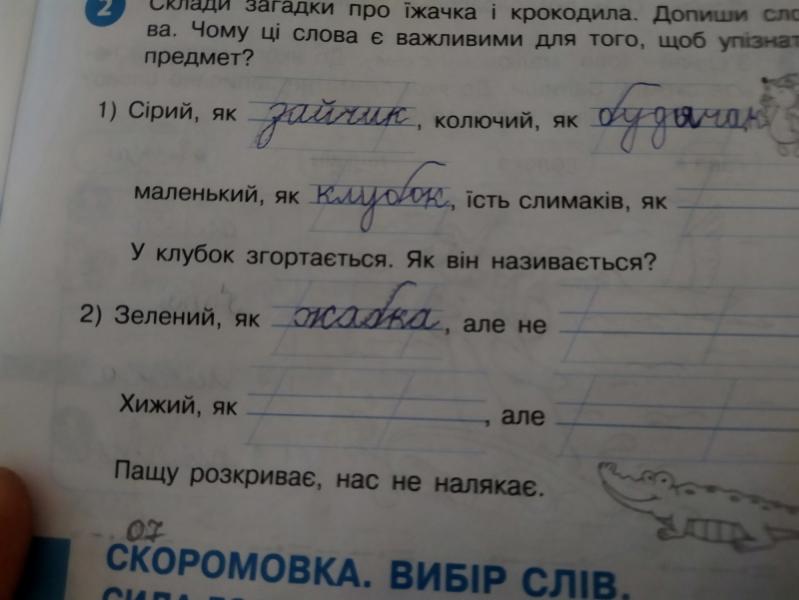 2 Склади загадки про їжачка і крокодила. Допиши сло
ва. Чому ці слова є важливими для того, щоб упізнат
предмет?
1) Сірий, як зайчик, колючий, як будячок
маленький, як клубок, їсть слимаків, як
У клубок згортається. Як він називається?
2) Зелений, як жабка, але не
Хижий, як , але
Пащу розкриває, нас не налякає.
07
СКОРОМОВКА. ВИБІР СЛІВ.